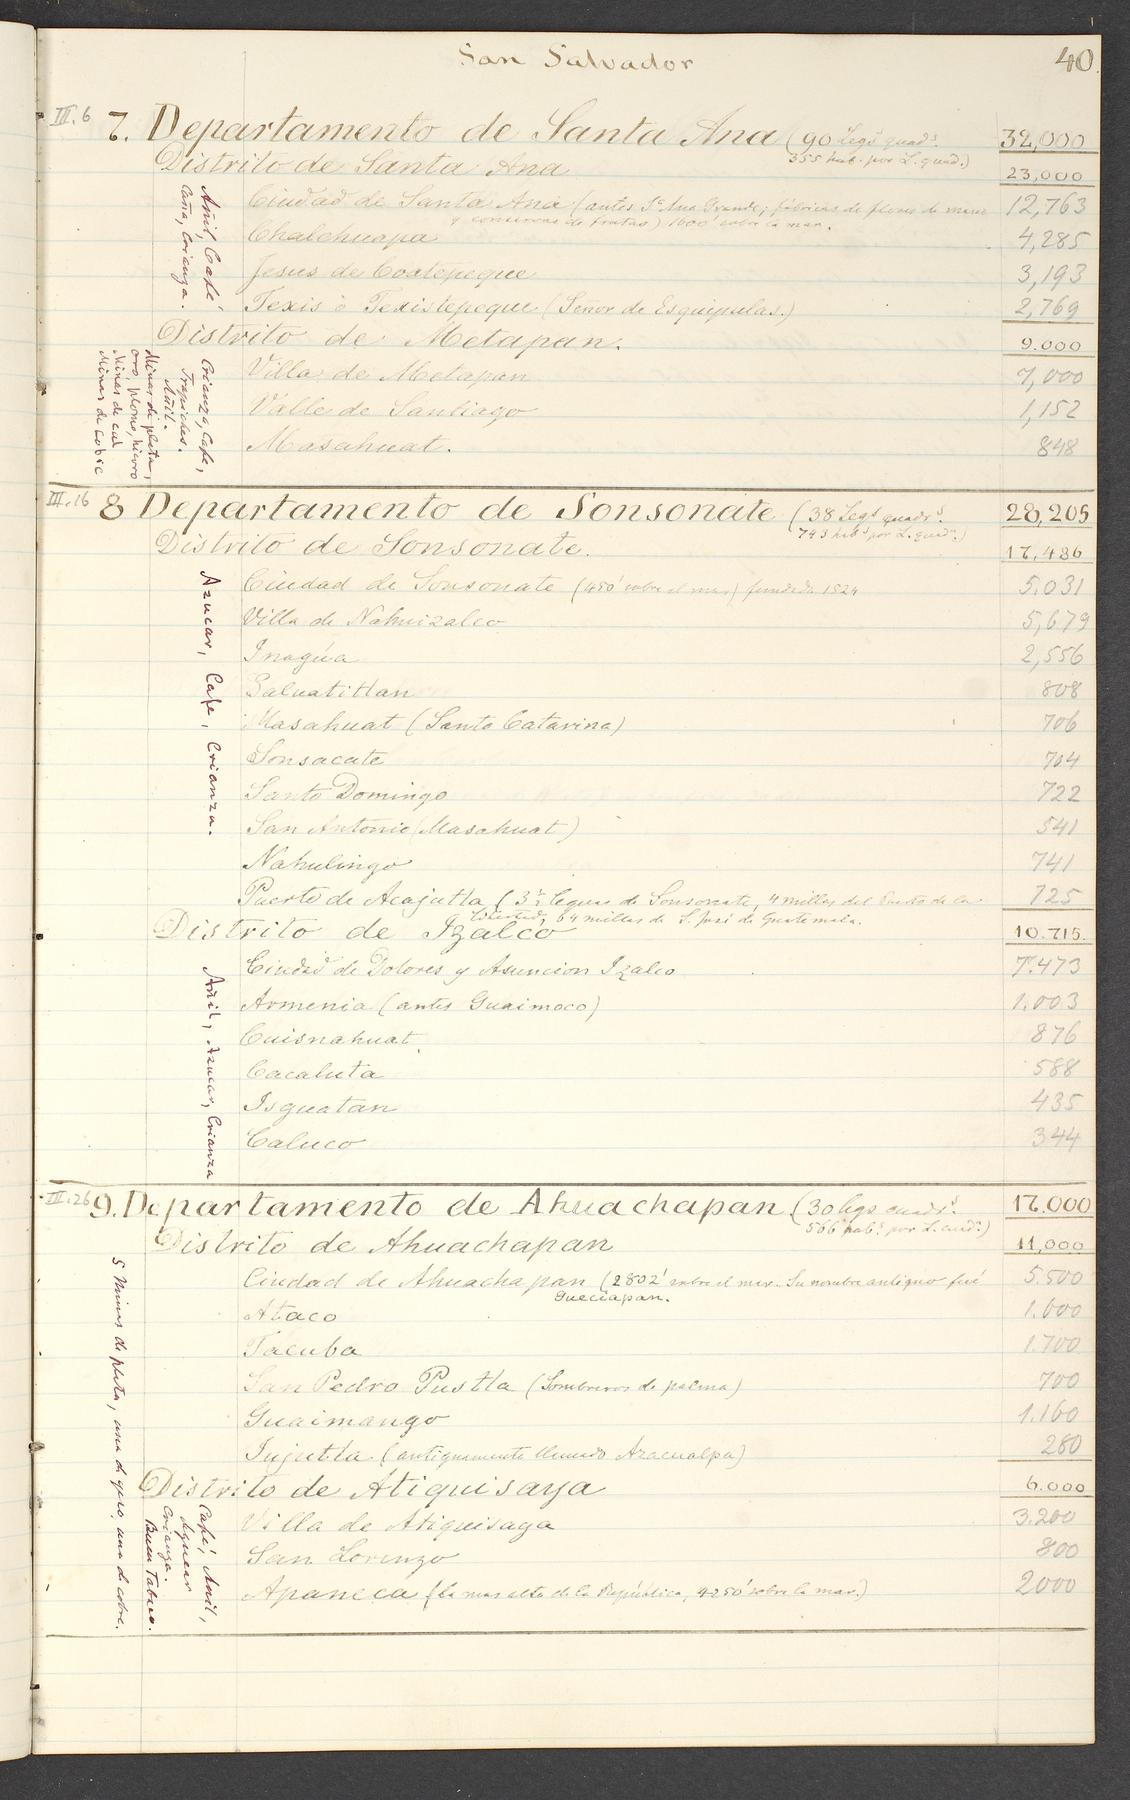 San Salvador
40
III.6 7. Departamento de Santa Ana (90 Legs quads. 32,000
355 hab. por L. quad.)
Distrito de Santa Ana 23,000
Añil, Café,
Caña, Crianza.
Ciudad de Santa Ana (antes Sta Ana Grande; fábricas de de 12,763
y conservas de frutas) sobre la mar.
Chalchuapa 4,285
Jesus de Coatepeque 3,193
Texis ó Texistepeque (Señor de Esquipulas.) 2,769
Distrito de Metapan. 9.000
Crianza, Café,
Trapiches.
Añil.
Minas de plata,
oro, plomo, hierro
Minas de cal
Minas de cobre
Villa de Metapan 7,000
Valle de Santiago 1,152
Masahuat. 848
III.16 8 Departamento de Sonsonate (38 Legs quadrs. 28,205
743 habs por L. quad.)
Distrito de Sonsonate. 17,486
Azucar, Café, Crianza.
Ciudad de Sonsonate (450' sobre el mar) fundada 1524 5.031
Villa de Nahuizalco 5,679
2,556
Salcatitlan 808
Masahuat (Santa Catarina) 706
Sonsacate 704
Santo Domingo 722
San Antonio (Masahuat) 541
Nahulingo 741
Puerto de Acajutla (3½ leguas de Sonsonate, 4 millas del Puerto de la 725
Libertad, 64 millas de S. José de Guatemala.
Distrito de Izalco 10.715.
Añil, Azucar, Crianza
Ciudad de Dolores y Asuncion Izalco 7.473
Armenia (antes Guaimoco) 1.003
Cuisnahuat 876
Cacaluta 588
Isguatan 435
Caluco 344
III.26 9. Departamento de Ahuachapan (30 legs cuads. 17.000
566 habs. por L. cuad.)
Distrito de Ahuachapan 11,000
5 Minas de plata, una de yeso, una de cobre.
Ciudad de Ahuachapan (2802' sobre el mar. Su nombre antiguo fué 5.500
Gueciapan.
Ataco 1.600
Tacuba 1.700
San Pedro Pustla (Sombreros de palma) 700
Guaimango 1.160
Jujutla (antiguamente llamado Azacualpa) 280
Distrito de Atiquisaya 6.000
Café, Añil,
Crianza.
Buen Tabaco.
Villa de Atiquisaya 3.200
San Lorenzo 800
Apaneca (la mas alta de la República, 4250' sobre la mar.) 2000